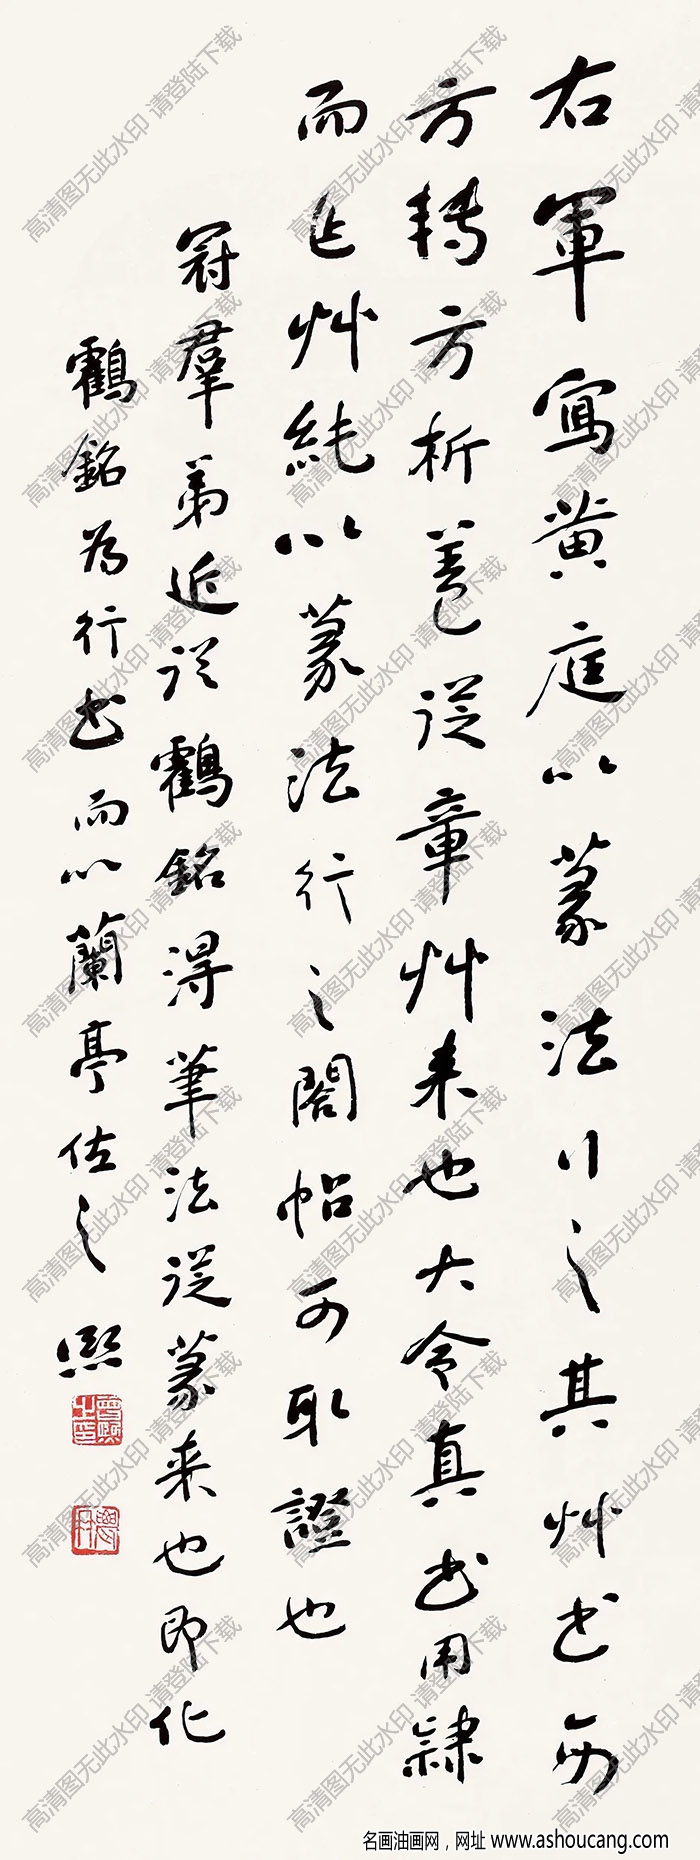 右軍寫黄庭以篆法行之其艸书多
方轉方析蓋從章艸来也大令真书用隷
而作艸純以篆法行之閣帖可取證也
冠羣弟近從鶴銘得筆法從篆来也即化
鶴銘為行书而以蘭亭佐之熙
高清图无此水印 请登陆下载
名画油画网，网址 www.ashoucang.com